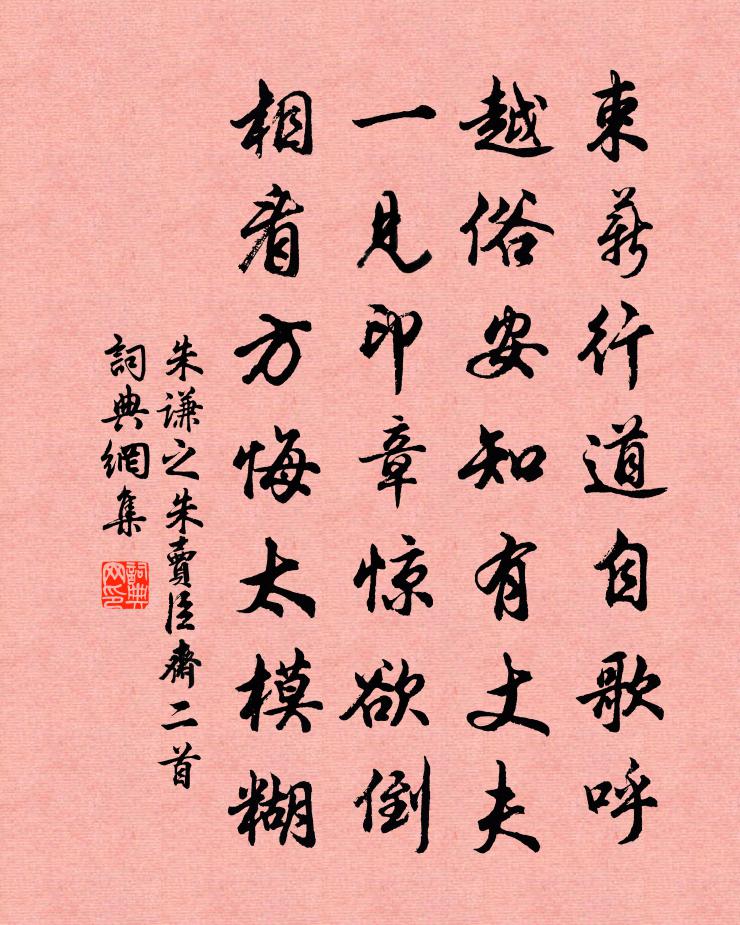 束薪行道自歌呼
越俗安知有丈夫
一見印章惊欲倒
相看方悔太模糊
朱謙之朱賣臣齋二首
詞典網集
詞典网印